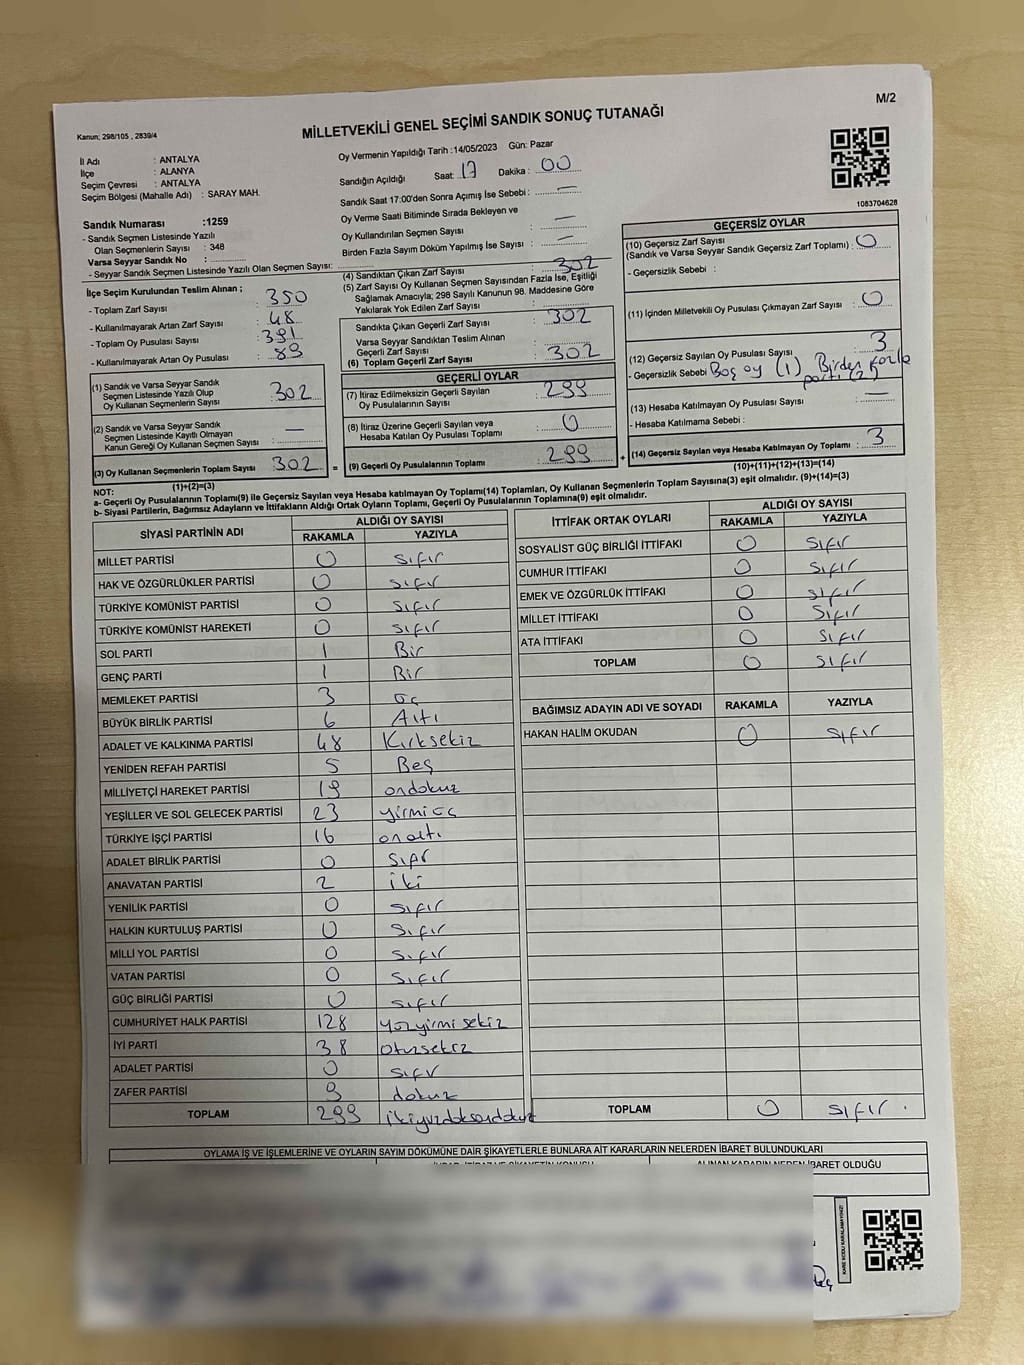 M/2
Kanun; 298/105 , 2839/4
MİLLETVEKİLİ GENEL SEÇİMİ SANDIK SONUÇ TUTANAĞI
İl Adı : ANTALYA
İlçe : ALANYA
Seçim Çevresi : ANTALYA
Seçim Bölgesi (Mahalle Adı) : SARAY MAH.
Sandık Numarası :1259
- Sandık Seçmen Listesinde Yazılı
Olan Seçmenlerin Sayısı : 348
Varsa Seyyar Sandık No :
- Seyyar Sandık Seçmen Listesinde Yazılı Olan Seçmen Sayısı:
Oy Vermenin Yapıldığı Tarih :14/05/2023 Gün: Pazar
Sandığın Açıldığı Saat: 17 Dakika : 00
Sandık Saat 17:00'den Sonra Açımış İse Sebebi : —
Oy Verme Saati Bitiminde Sırada Bekleyen ve
Oy Kullandırılan Seçmen Sayısı : —
Birden Fazla Sayım Döküm Yapılmış İse Sayısı : —
1083704628
İlçe Seçim Kurulundan Teslim Alınan ;
- Toplam Zarf Sayısı : 350
- Kullanılmayarak Artan Zarf Sayısı : 48
- Toplam Oy Pusulası Sayısı : 391
- Kullanılmayarak Artan Oy Pusulası : 89
(1) Sandık ve Varsa Seyyar Sandık
Seçmen Listesinde Yazılı Olup
Oy Kullanan Seçmenlerin Sayısı : 302
(2) Sandık ve Varsa Seyyar Sandık
Seçmen Listesinde Kayıtlı Olmayan
Kanun Gereği Oy Kullanan Seçmen Sayısı : —
(3) Oy Kullanan Seçmenlerin Toplam Sayısı : 302
(1)+(2)=(3)
(4) Sandıktan Çıkan Zarf Sayısı : 302
(5) Zarf Sayısı Oy Kullanan Seçmen Sayısından Fazla İse, Eşitliği
Sağlamak Amacıyla; 298 Sayılı Kanunun 98. Maddesine Göre
Yakılarak Yok Edilen Zarf Sayısı :
Sandıkta Çıkan Geçerli Zarf Sayısı : 302
Varsa Seyyar Sandıktan Teslim Alınan
Geçerli Zarf Sayısı :
(6) Toplam Geçerli Zarf Sayısı : 302
GEÇERLİ OYLAR
(7) İtiraz Edilmeksizin Geçerli Sayılan
Oy Pusulalarının Sayısı : 299
(8) İtiraz Üzerine Geçerli Sayılan veya
Hesaba Katılan Oy Pusulası Toplamı : 0
= (9) Geçerli Oy Pusulalarının Toplamı : 299
GEÇERSİZ OYLAR
(10) Geçersiz Zarf Sayısı
(Sandık ve Varsa Seyyar Sandık Geçersiz Zarf Toplamı) : 0
- Geçersizlik Sebebi :
(11) İçinden Milletvekili Oy Pusulası Çıkmayan Zarf Sayısı : 0
(12) Geçersiz Sayılan Oy Pusulası Sayısı : 3
- Geçersizlik Sebebi Boş oy (1) Birden fazla
parti (2)
(13) Hesaba Katılmayan Oy Pusulası Sayısı : —
- Hesaba Katılmama Sebebi :
+ (14) Geçersiz Sayılan veya Hesaba Katılmayan Oy Toplamı : 3
(10)+(11)+(12)+(13)=(14)
NOT:
a- Geçerli Oy Pusulalarının Toplamı(9) ile Geçersiz Sayılan veya Hesaba katılmayan Oy Toplamı(14) Toplamları, Oy Kullanan Seçmenlerin Toplam Sayısına(3) eşit olmalıdır. (9)+(14)=(3)
b- Siyasi Partilerin, Bağımsız Adayların ve İttifakların Aldığı Ortak Oyların Toplamı, Geçerli Oy Pusulalarının Toplamına(9) eşit olmalıdır.
SİYASİ PARTİNİN ADI ALDIĞI OY SAYISI
RAKAMLA YAZIYLA
MİLLET PARTİSİ 0 sıfır
HAK VE ÖZGÜRLÜKLER PARTİSİ 0 sıfır
TÜRKİYE KOMÜNİST PARTİSİ 0 sıfır
TÜRKİYE KOMÜNİST HAREKETİ 0 sıfır
SOL PARTİ 1 Bir
GENÇ PARTİ 1 Bir
MEMLEKET PARTİSİ 3 üç
BÜYÜK BİRLİK PARTİSİ 6 Altı
ADALET VE KALKINMA PARTİSİ 48 Kırksekiz
YENİDEN REFAH PARTİSİ 5 Beş
MİLLİYETÇİ HAREKET PARTİSİ 19 ondokuz
YEŞİLLER VE SOL GELECEK PARTİSİ 23 yirmiüç
TÜRKİYE İŞÇİ PARTİSİ 16 onaltı
ADALET BİRLİK PARTİSİ 0 sıfır
ANAVATAN PARTİSİ 2 iki
YENİLİK PARTİSİ 0 sıfır
HALKIN KURTULUŞ PARTİSİ 0 sıfır
MİLLİ YOL PARTİSİ 0 sıfır
VATAN PARTİSİ 0 sıfır
GÜÇ BİRLİĞİ PARTİSİ 0 sıfır
CUMHURİYET HALK PARTİSİ 128 yüzyirmi sekiz
İYİ PARTİ 38 otuzsekiz
ADALET PARTİSİ 0 sıfır
ZAFER PARTİSİ 9 dokuz
TOPLAM 299 ikiyüzdoksandokuz
İTTİFAK ORTAK OYLARI ALDIĞI OY SAYISI
RAKAMLA YAZIYLA
SOSYALİST GÜÇ BİRLİĞİ İTTİFAKI 0 sıfır
CUMHUR İTTİFAKI 0 sıfır
EMEK VE ÖZGÜRLÜK İTTİFAKI 0 sıfır
MİLLET İTTİFAKI 0 sıfır
ATA İTTİFAKI 0 sıfır
TOPLAM 0 sıfır
BAĞIMSIZ ADAYIN ADI VE SOYADI RAKAMLA YAZIYLA
HAKAN HALİM OKUDAN 0 sıfır
TOPLAM 0 sıfır .
OYLAMA İŞ VE İŞLEMLERİNE VE OYLARIN SAYIM DÖKÜMÜNE DAİR ŞİKAYETLERLE BUNLARA AİT KARARLARIN NELERDEN İBARET BULUNDUKLARI
ALINAN KARARIN NEDEN İBARET OLDUĞU
KARE KODU KARALAMAYINIZ!